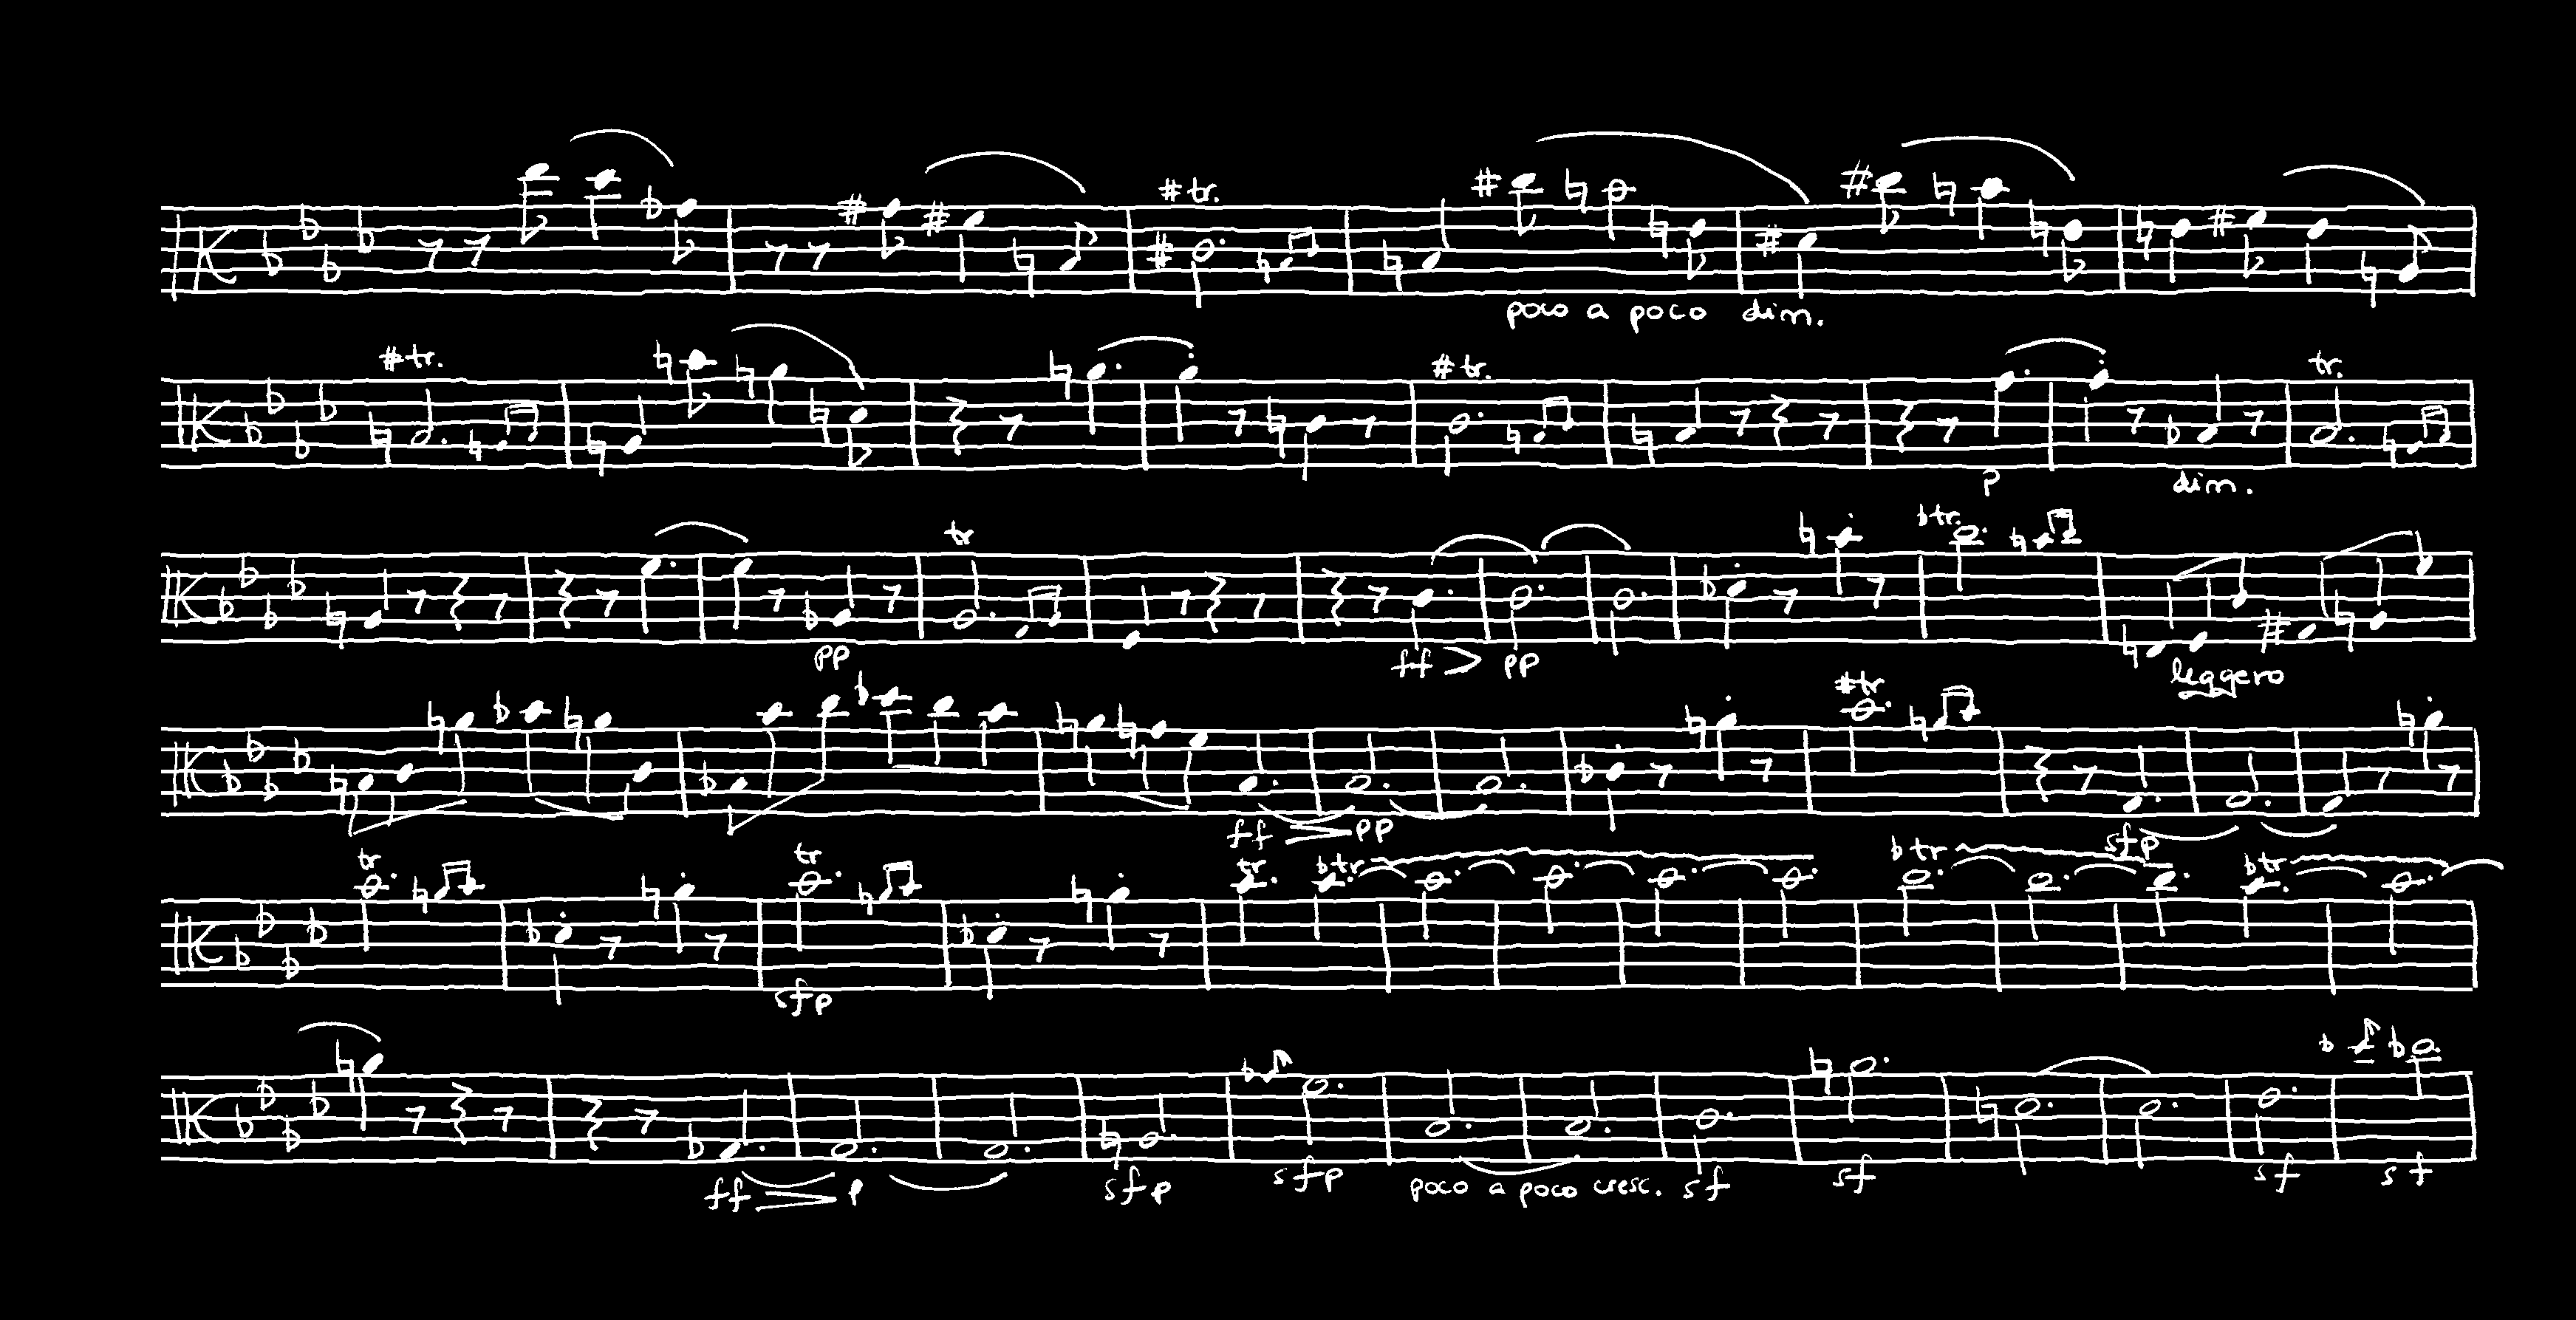 tr.
poco a poco dim.
tr.
tr.
tr.
p
dim.
tr
pp
ff
pp
tr.
leggero
tr
ff
pp
sfp
tr
tr
tr.
tr
tr
tr
sfp
ff
p
sfp
sfp
poco a poco cresc.
sf
sf
sf
sf